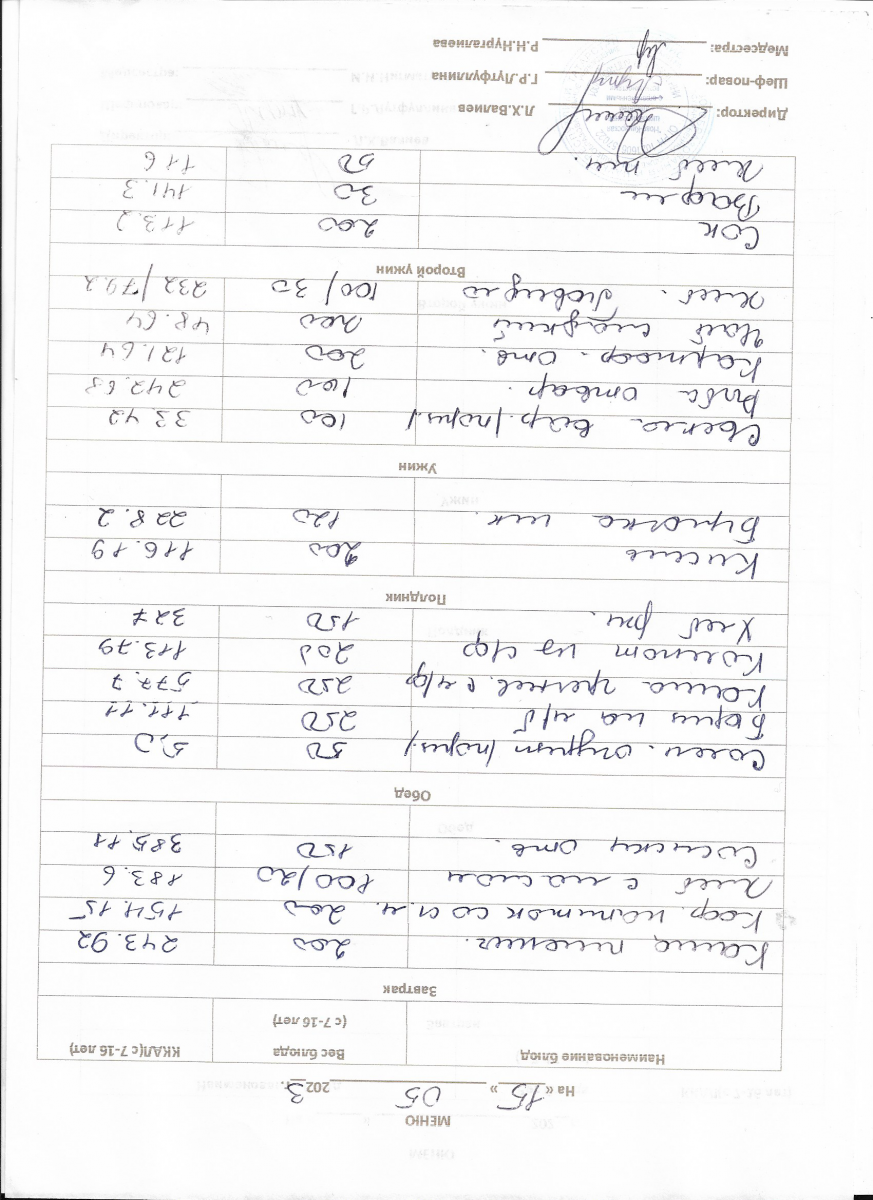 МЕНЮ
На « 15 » 05 2023.
Наименование блюд Вес блюда (с 7-16 лет) ККАЛ(с 7-16 лет)
Завтрак
Каша пшенич. 200 243.92
Коф. напиток со сг. м. 200 154.15
Хлеб с маслом 100/20 183.6
Сосиски отв. 150 385.11
Обед
Солен. огурцы /порц/ 50 5,0
Борщ на м/б 250 111.11
Каша гречнев. с м/ф 250 577.7
Компот из с/ф 200 113.79
Хлеб рж. 150 327
Полдник
Кисель 200 116.19
Булочка шк. 120 228.2
Ужин
Свекла вар. /порц/ 100 33.42
Рыба отвар. 100 242.68
Картоф. отв. 200 121.64
Чай сладкий 200 48.64
Хлеб. повидло 100/30 232/79.2
Второй ужин
Сок 200 113.2
Вафли 30 141.3
Хлеб пш. 50 116
Директор: Л.Х.Валиев
Шеф-повар: Г.Р.Лутфуллина
Медсестра: Р.Н.Нургалиева